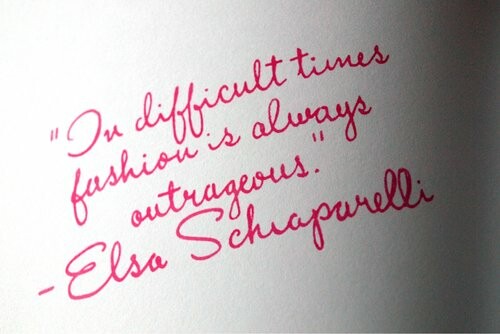 "In difficult times
fashion is always
outrageous."
-Elsa Schiaparelli